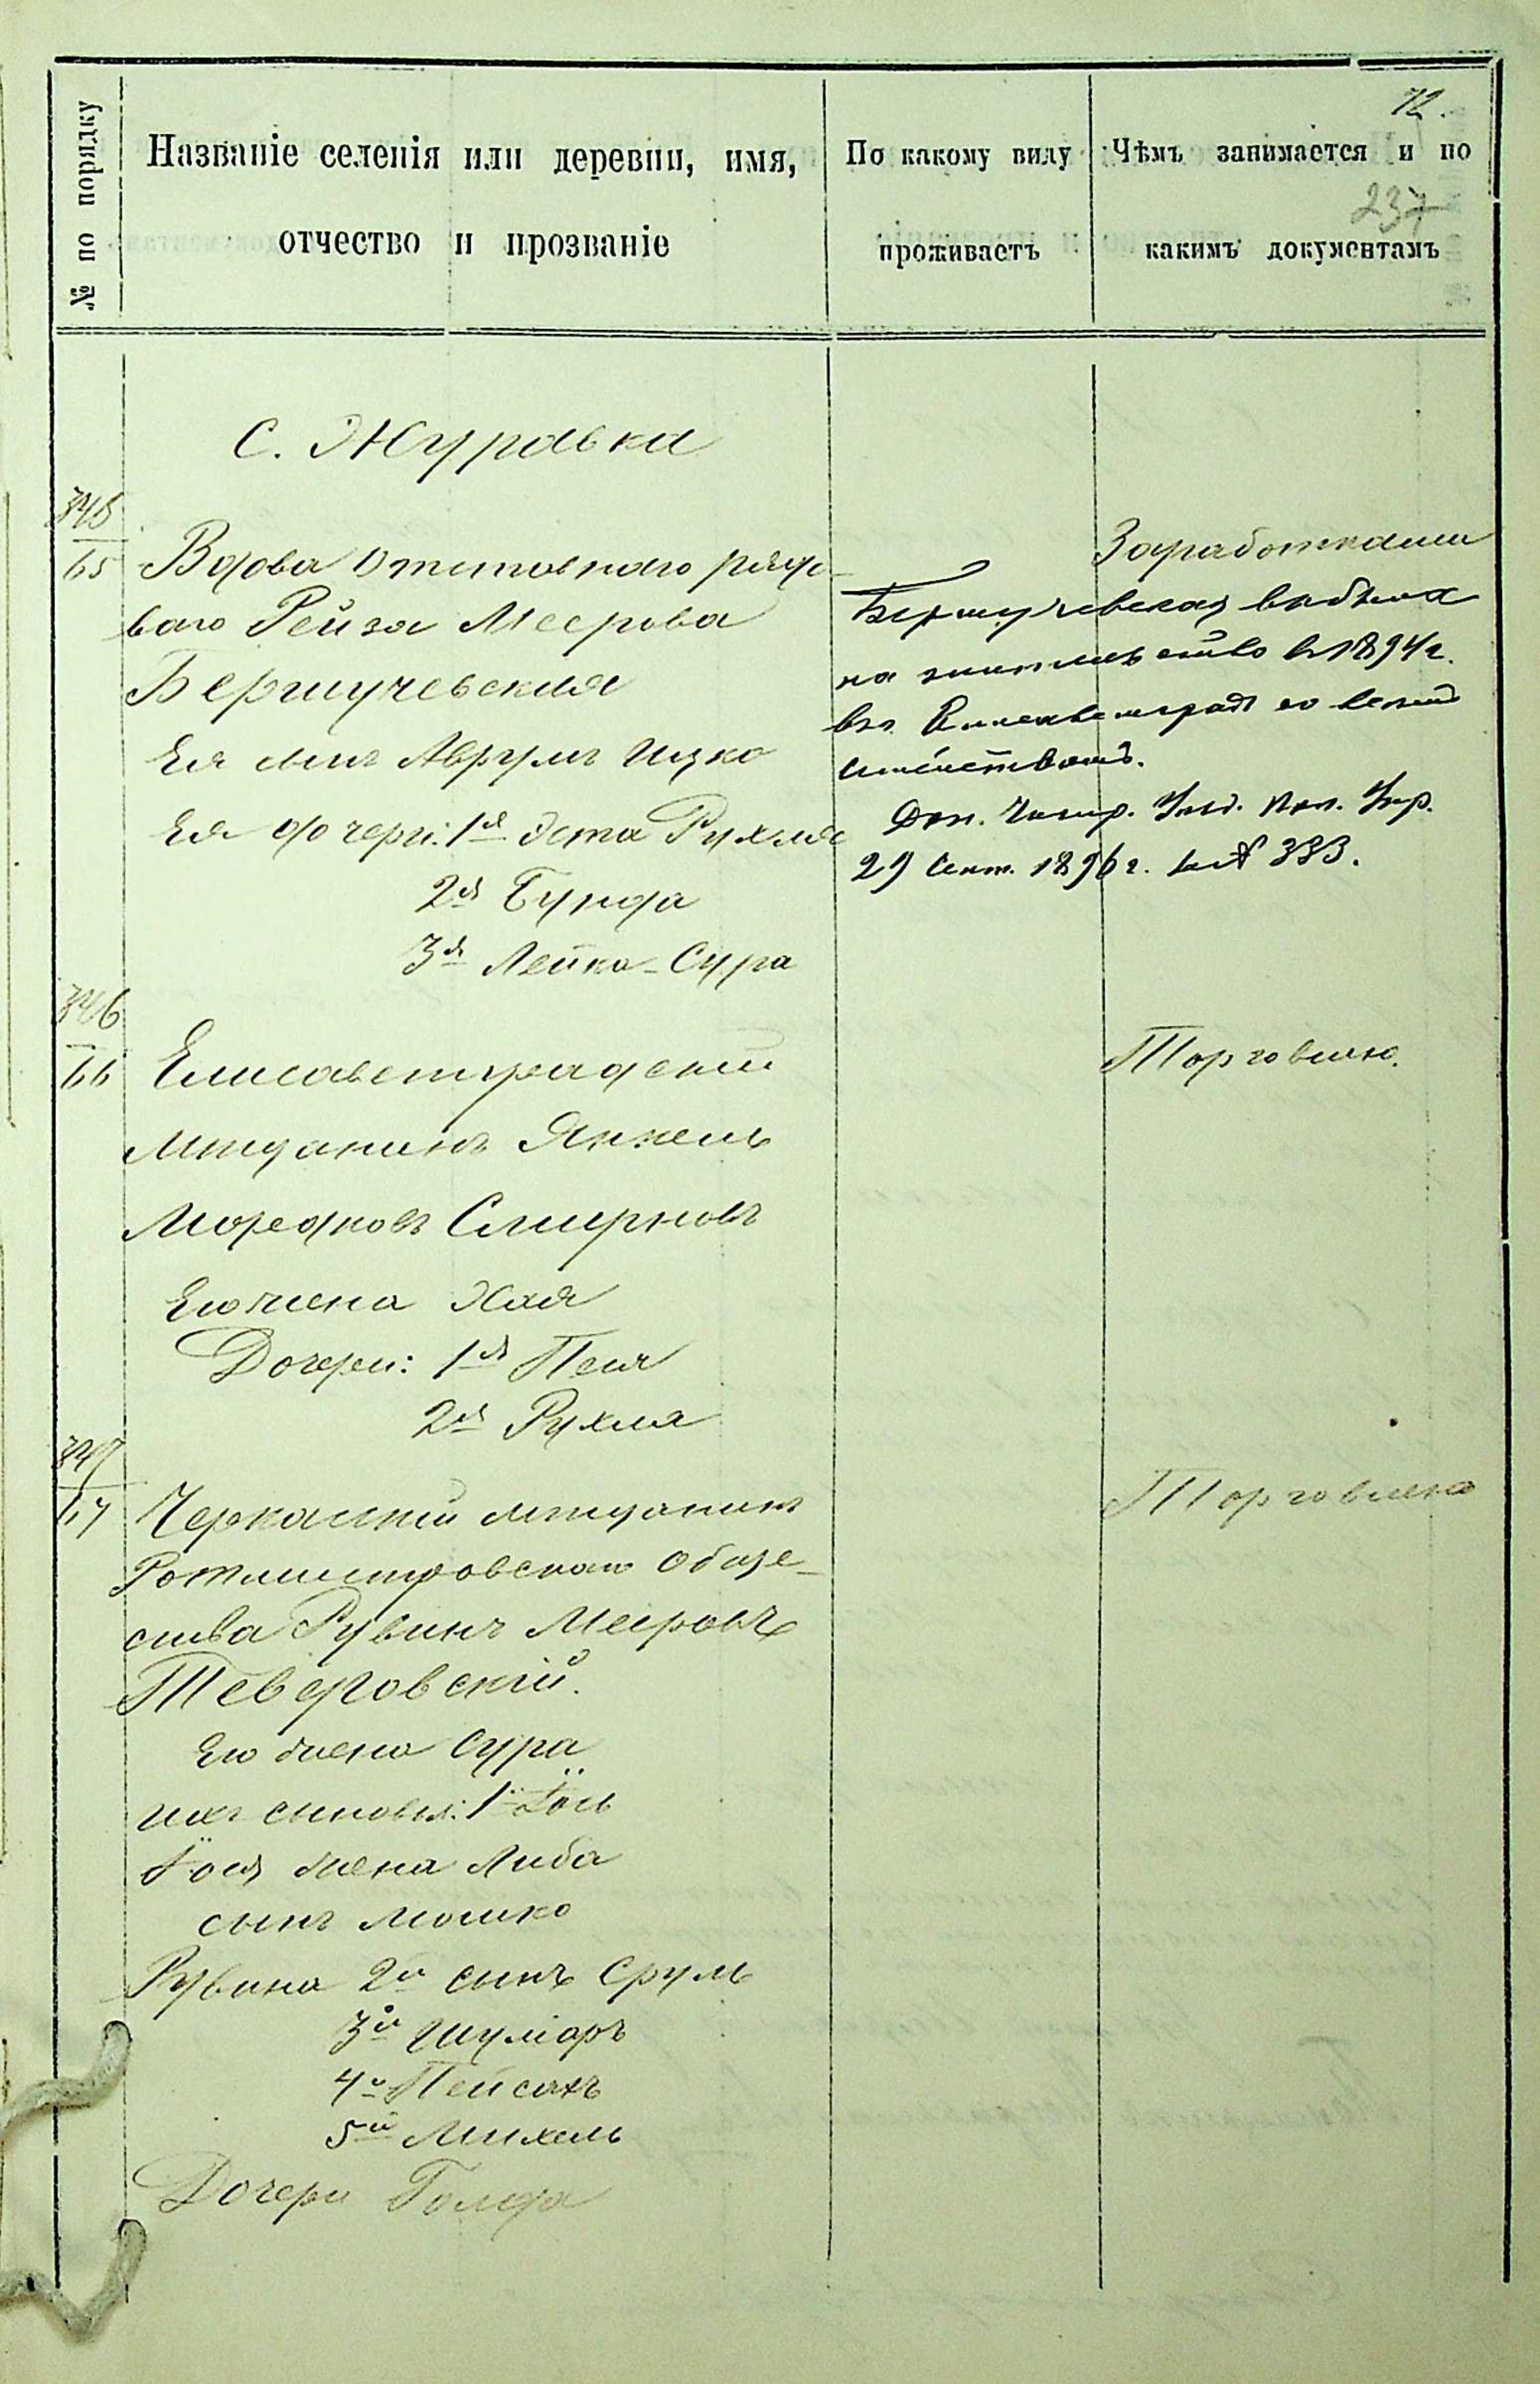 72.
237
№ по порядку
Названіе селенія или деревни, имя,
отчество и прозваніе
По какому виду
проживаетъ
Чѣмъ занимается и по
какимъ документамъ
С. Журавка
345
65
Вдова Отставнаго рядо-
ваго Рейза Меерова
Бершучевская
Ея сынъ Аврумъ Ицко
Ея дочери: 1я Эста Рухля
2я Бунда
3я Лейка-Сура
Заработками
Бершучевская выбыла
на жительство въ 1894 г.
въ Елисаветградъ со всемъ
семействомъ.
Дон. Чигир. Уѣзд. Пол. Упр.
29 Сент. 1896 г. за № 333.
346
66
Елисаветградскій
мѣщанинъ Янкель
Мордковъ Смирновъ
Его жена Хая
Дочери: 1я Песя
2я Рухля
Торговлею.
347
67
Черкасскій мѣщанинъ
Ротмистровскаго обще-
ства Рувинъ Мееровъ
Тевдровскій.
Его жена Сура
ихъ сыновья: 1й Іось
Іося жена Либа
сынъ Мошко
Рувина 2й сынъ Сруль
3й Шуліаръ
4й Пейсахъ
5й Михель
Дочери Голда
Торговлею